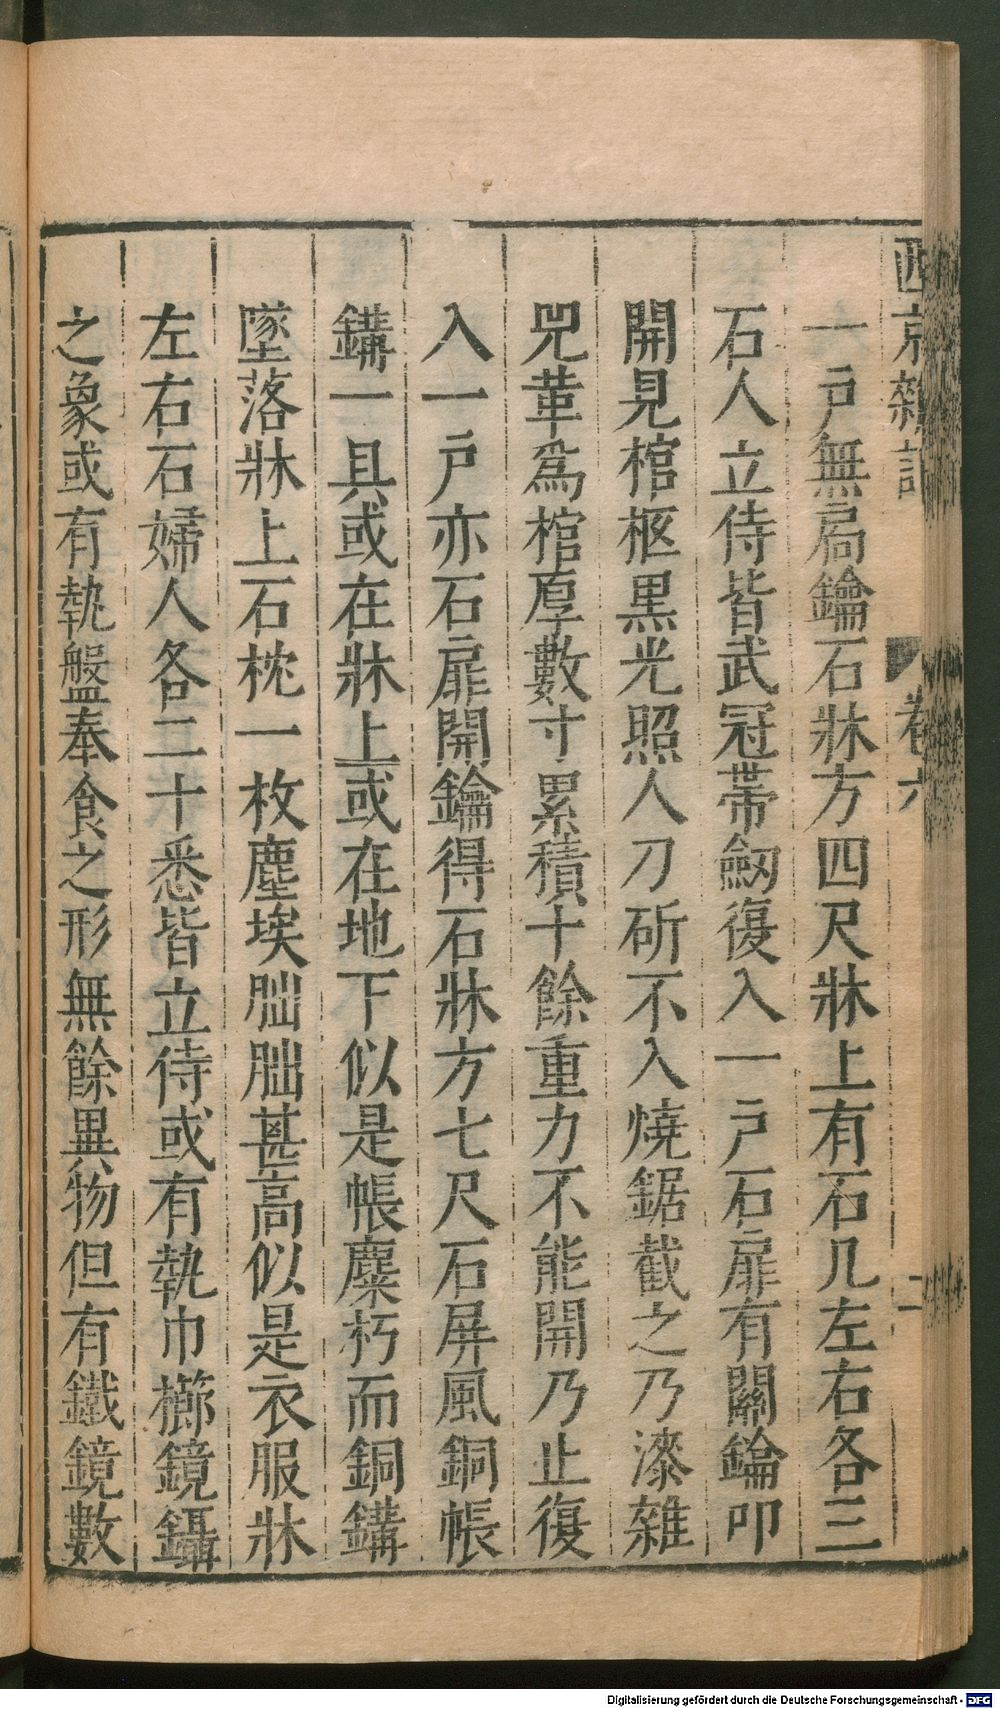 西京雜記 卷六 二
一戸無扃鑰石牀方四尺牀上有石几左右各三
石人立侍皆武冠帶劒復入一戸石扉有關鑰叩
開見棺柩黑光照人刀斫不入燒鋸截之乃漆雜
兕革爲棺厚數寸累積十餘重力不能開乃止復
入一戸亦石扉開鑰得石牀方七尺石屏風銅帳
鏀一具或在牀上或在地下似是帳麋朽而銅鏀
墜落牀上石枕一枚塵埃朏朏甚高似是衣服牀
左右石婦人各二十悉皆立侍或有執巾櫛鏡鑷
之象或有執盤奉食之形無餘異物但有鐵鏡數
Digitalisierung gefördert durch die Deutsche Forschungsgemeinschaft - DFG